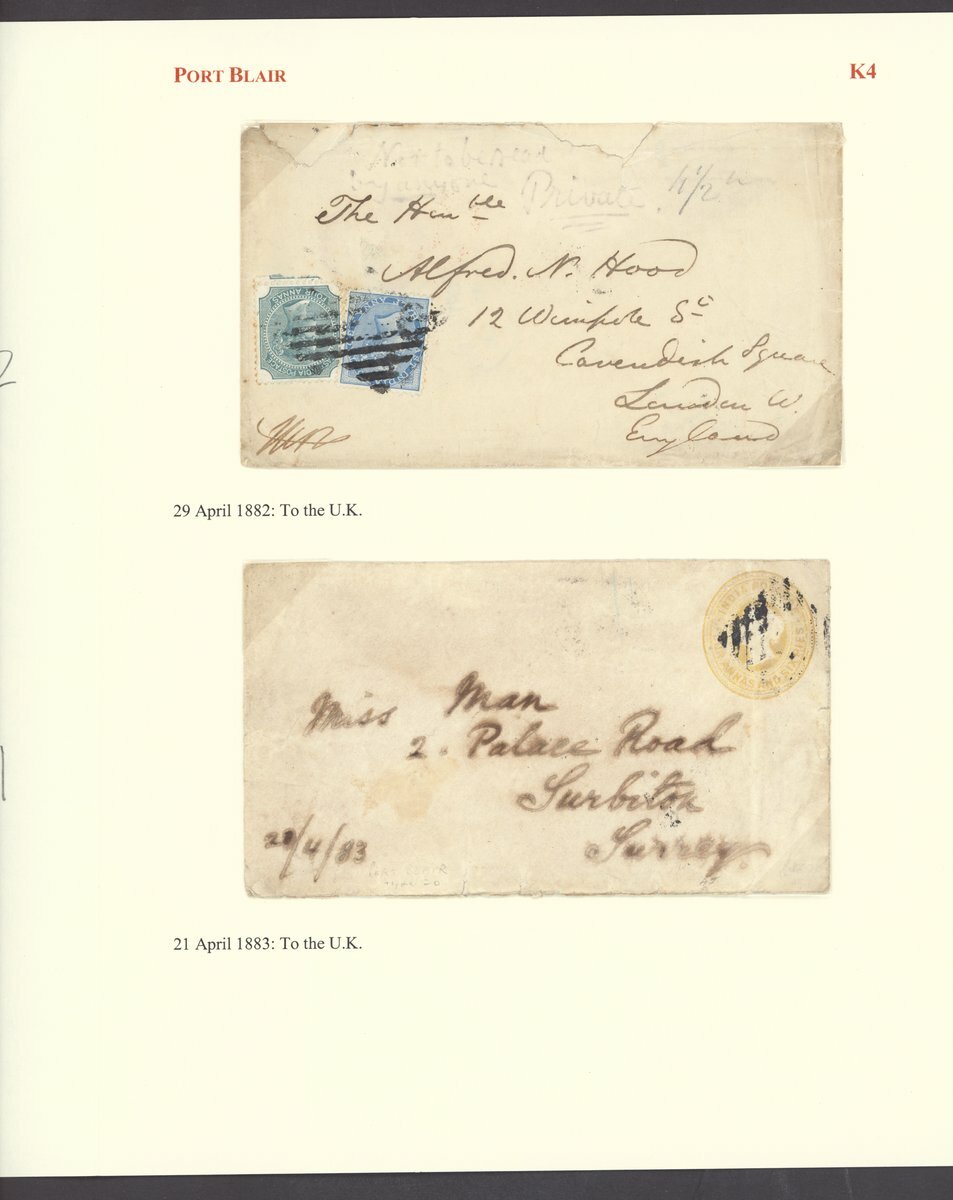 PORT BLAIR
K4
Not to be read
by anyone
Private. 4½
The Honble
Alfred. N. Hood
12 Wimpole St
Cavendish Square
London W.
England
FOUR ANNAS
INDIA POSTAGE
29 April 1882: To the U.K.
INDIA
ANNAS AND SIX PIES
Miss Man
2. Palace Road
Surbiton
Surrey.
/4/83
PORT BLAIR
21 April 1883: To the U.K.